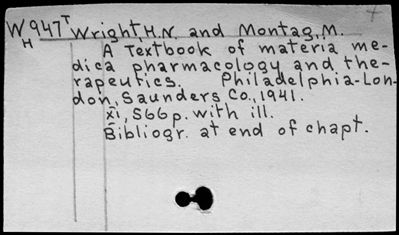 WH947T Wright, H.N. and Montag, M.
A Textbook of materia me-
dica pharmacology and the-
rapeutics. Philadelphia-Lon-
don, Saunders Co., 1941.
XI, 566 p. with ill.
Bibliogr. at end of chapt.